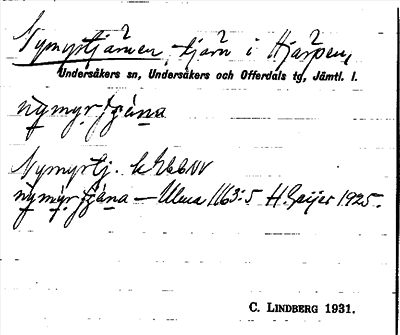 Nymyrtjärnen, tjärn i Hjärpen,
Undersåkers sn, Undersåkers och Offerdals tg, Jämtl. l.
nymyrtjäna
Nymyrtj. k
nymyrtjäna — Ulma 1163:5 H. Geijer 1925.
C. LINDBERG 1931.